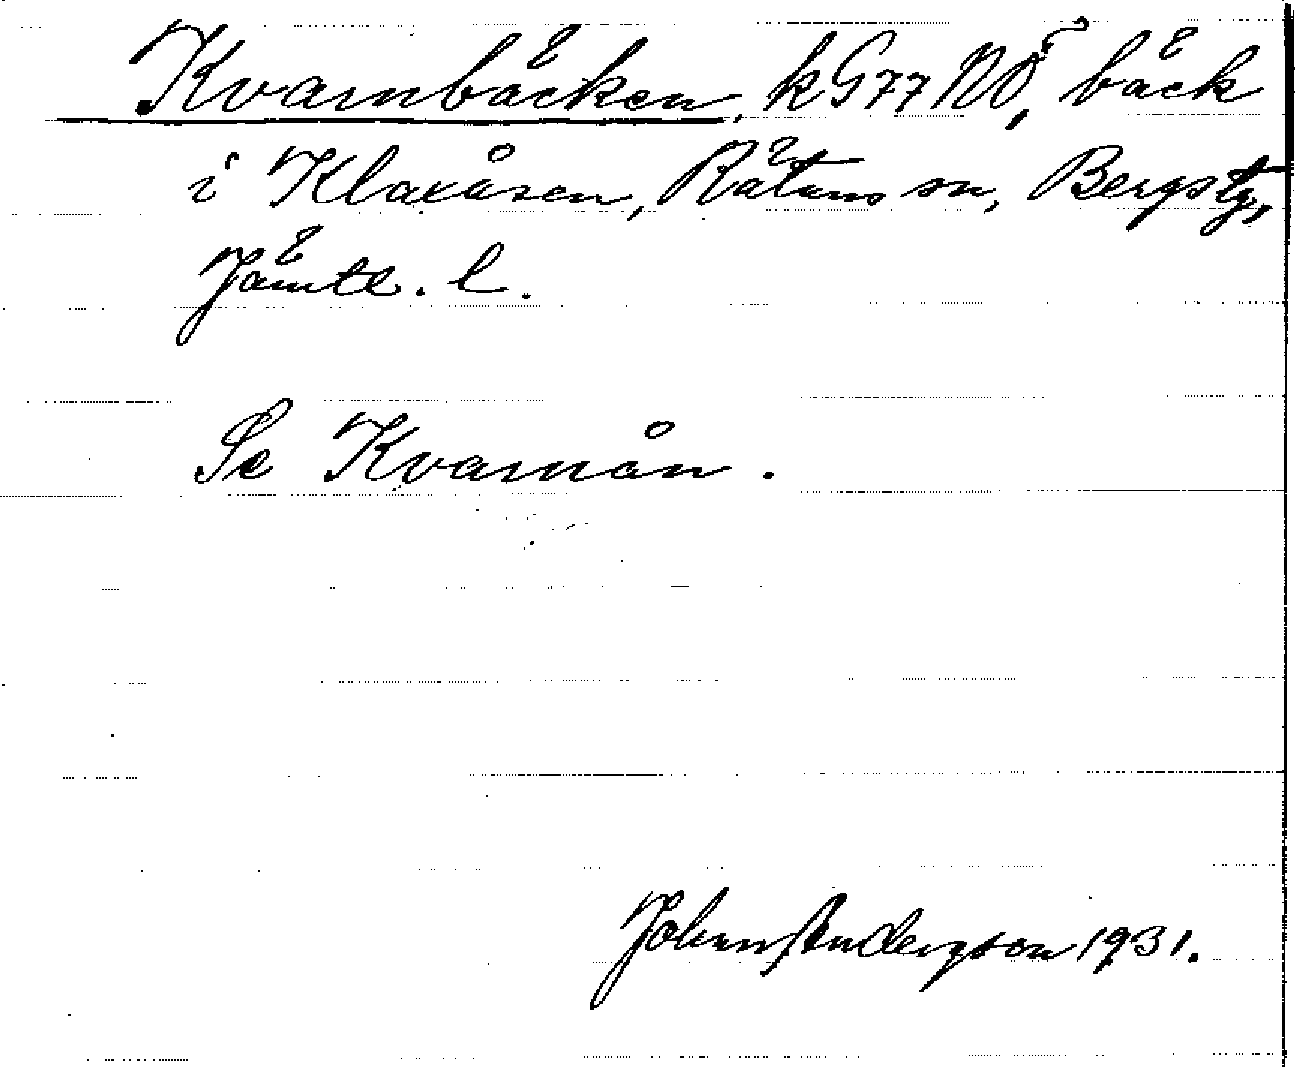 Kvarnbäcken, kG77NÖ, bäck
i Klaxåsen, Rätans sn, Bergs tg,
Jämtl. l.
Se Kvarnån.
Johan Anderzson 1931.